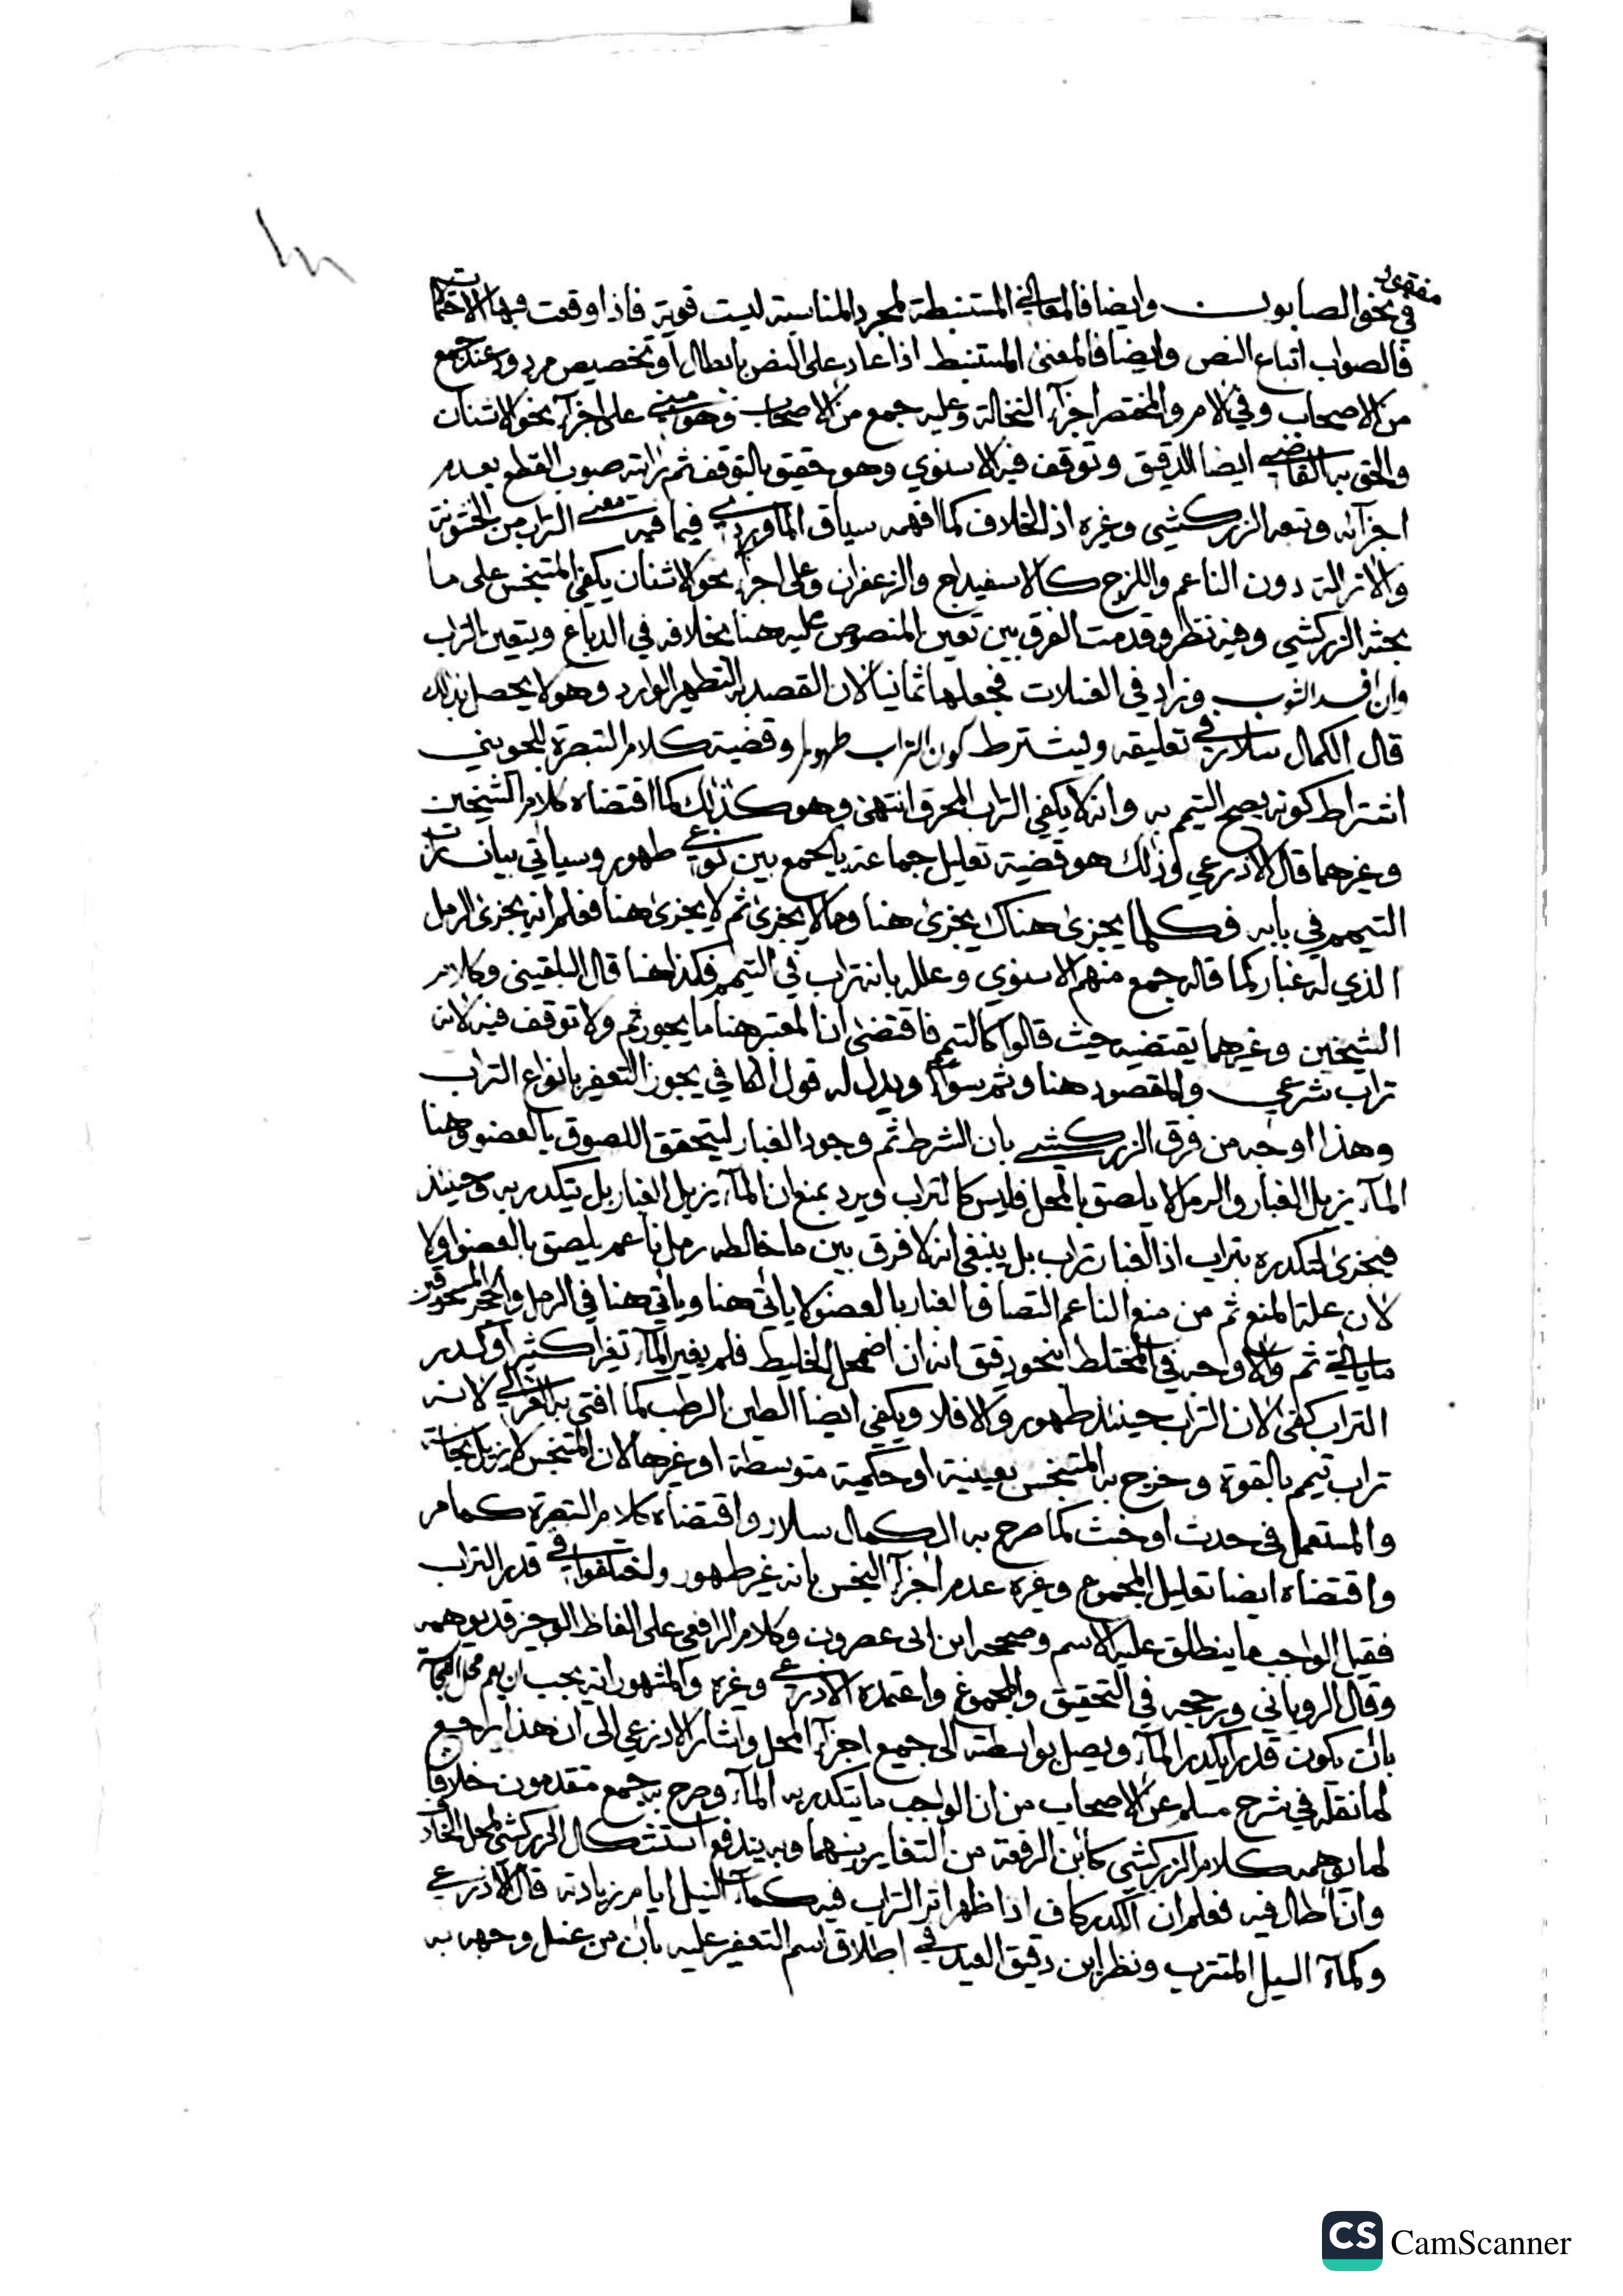 مفقود
في نحو الصابون وايضا فالمعاني المستنبطة لمجرد المناسبة ليست قوية فاذا وقعت فيها الاحتمالات
فالصواب اتباع النص وايضا فالمعنى المستنبط اذا عاد على النص بابطال او تخصيص مردود عند جمع
من الاصحاب وفي الام والمختصر اجزآء النخالة وعليه جمع من الاصحاب وهو مبني على اجزآء نحو الاشنان
والحق به القاضي ايضا الدقيق وتوقف فيه الاسنوي وهو حقيق بالتوقف ثم رايته صوب القطع بعدم
اجزآئه وتبعه الزركشي وغيره اذ الخلاف كما افهمه سياق الماوردي فيما فيه معنى التراب من الخشونة
والازالة دون الناعم واللزج كالاسفيداج والزعفران وعلى اجزآء نحو الاشنان يكفي المتنجس على ما
بحثه الزركشي وفيه نظر وقدمت الفرق بين تعين المنصوص عليه هنا بخلافه في الدباغ ويتعين التراب
وان افسد الثوب وزاد في الغسلات فجعلها ثمانيا لان القصد به التطهير الوارد وهو لا يحصل بذلك
قال الكمال سلار في تعليقه ويشترط كون التراب طهورا وقضية كلام التبصرة للجويني
اشتراط كونه يصح التيمم به وانه لا يكفي التراب المحرق انتهى وهو كذلك كما اقتضاه كلام الشيخين
وغيرهما قال الاذرعي وذلك هو قضية تعليل جماعة بالجمع بين نوعي طهور وسياتي بيان تراب
التيمم في بابه فكلما يجزئ هناك يجزئ هنا وما لا يجزئ ثم لا يجزئ هنا فعلم انه يجزئ الرمل
الذي له غبار كما قاله جمع منهم الاسنوي وعلله بانه تراب في التيمم فكذا هنا قال البلقيني وكلام
الشيخين وغيرهما يقتضيه حيث قالوا كالتيمم فاقتضى ان المعتبر هنا ما يجوز ثم ولا توقف فيه لانه
تراب شرعي والمقصود هنا وثم سوآء ويدل له قول الكافي يجوز التعفير بانواع التراب
وهذا اوجه من فرق الزركشي بان الشرط ثم وجود الغبار ليتحقق اللصوق بالعضو وهنا
المآء يزيل الغبار والرمل لا يلصق بالمحل فليس كالتراب ويرد بمنع ان المآء يزيل الغبار بل يتكدر به وحينئذ
فيجزئ لتكدره بتراب اذ الغبار تراب بل ينبغي انه لا فرق بين ما خالطه رمل ناعم يلصق بالعضو او لا
لان علة المنع ثم من منع الناعم التصاق الغبار بالعضو لا ياتي هنا وياتي هنا في الرمل والحجر المسحوقين
ما ياتي ثم والاوجه في المختلط بنحو دقيق انه ان اضمحل الخليط فلم يغير المآء تغيرا كثيرا وكدر
التراب كفى لان التراب حينئذ طهور والا فلا ويكفي ايضا الطين الرطب كما افتى به الغزالي لانه
تراب تيمم بالقوة وخرج به المتنجس بعينية او حكمية متوسطة او غيرها لان المتنجس لا يزيل نجاسة
والمستعمل في حدث او خبث كما صرح به الكمال سلار واقتضاه كلام التبصرة كما مر
واقتضاه ايضا تعليل المجموع وغيره عدم اجزآء النجس بانه غير طهور واختلفوا في قدر التراب
فقيل الواجب ما ينطلق عليه الاسم وصححه ابن ابى عصرون وكلام الرافعي على الفاظ الوجيز قد يوهمه
وقال الروياني ورجحه في التحقيق والمجموع واعتمده الاذرعي وغيره والمشهور انه يجب ان يعم محل النجاسة
بان يكون قدرا يكدر المآء ويصل بواسطته الى جميع اجزآء المحل واشار الاذرعي الى ان هذا يراجع
لما نقله في شرح مسلم عن الاصحاب من ان الواجب ما يتكدر به المآء وصرح به جمع متقدمون خلافا
لما يوهمه كلام الزركشي كابن الرفعة من التغاير بينهما وبه يندفع استشكال الزركشي لمحل الخلاف
وان اطال فيه فعلم ان الكدر كاف اذا ظهر اثر التراب فيه كمآء النيل ايام زيادته قال الاذرعي
وكمآء السيل المتترب ونظر ابن دقيق العيد في اطلاق اسم التعفير عليه بان من غسل وجهه به
CS CamScanner